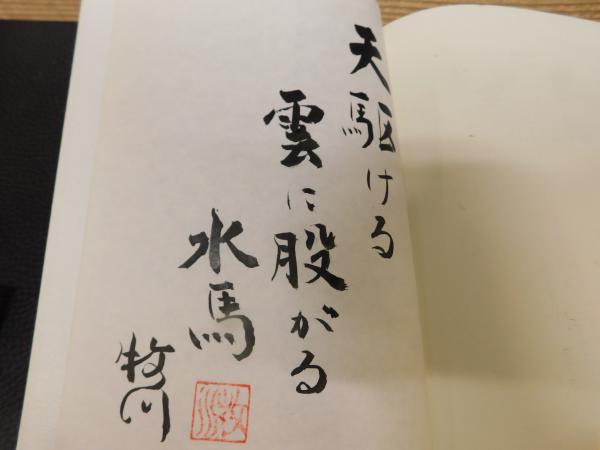 天駆ける
雲に股がる
水馬
牧川